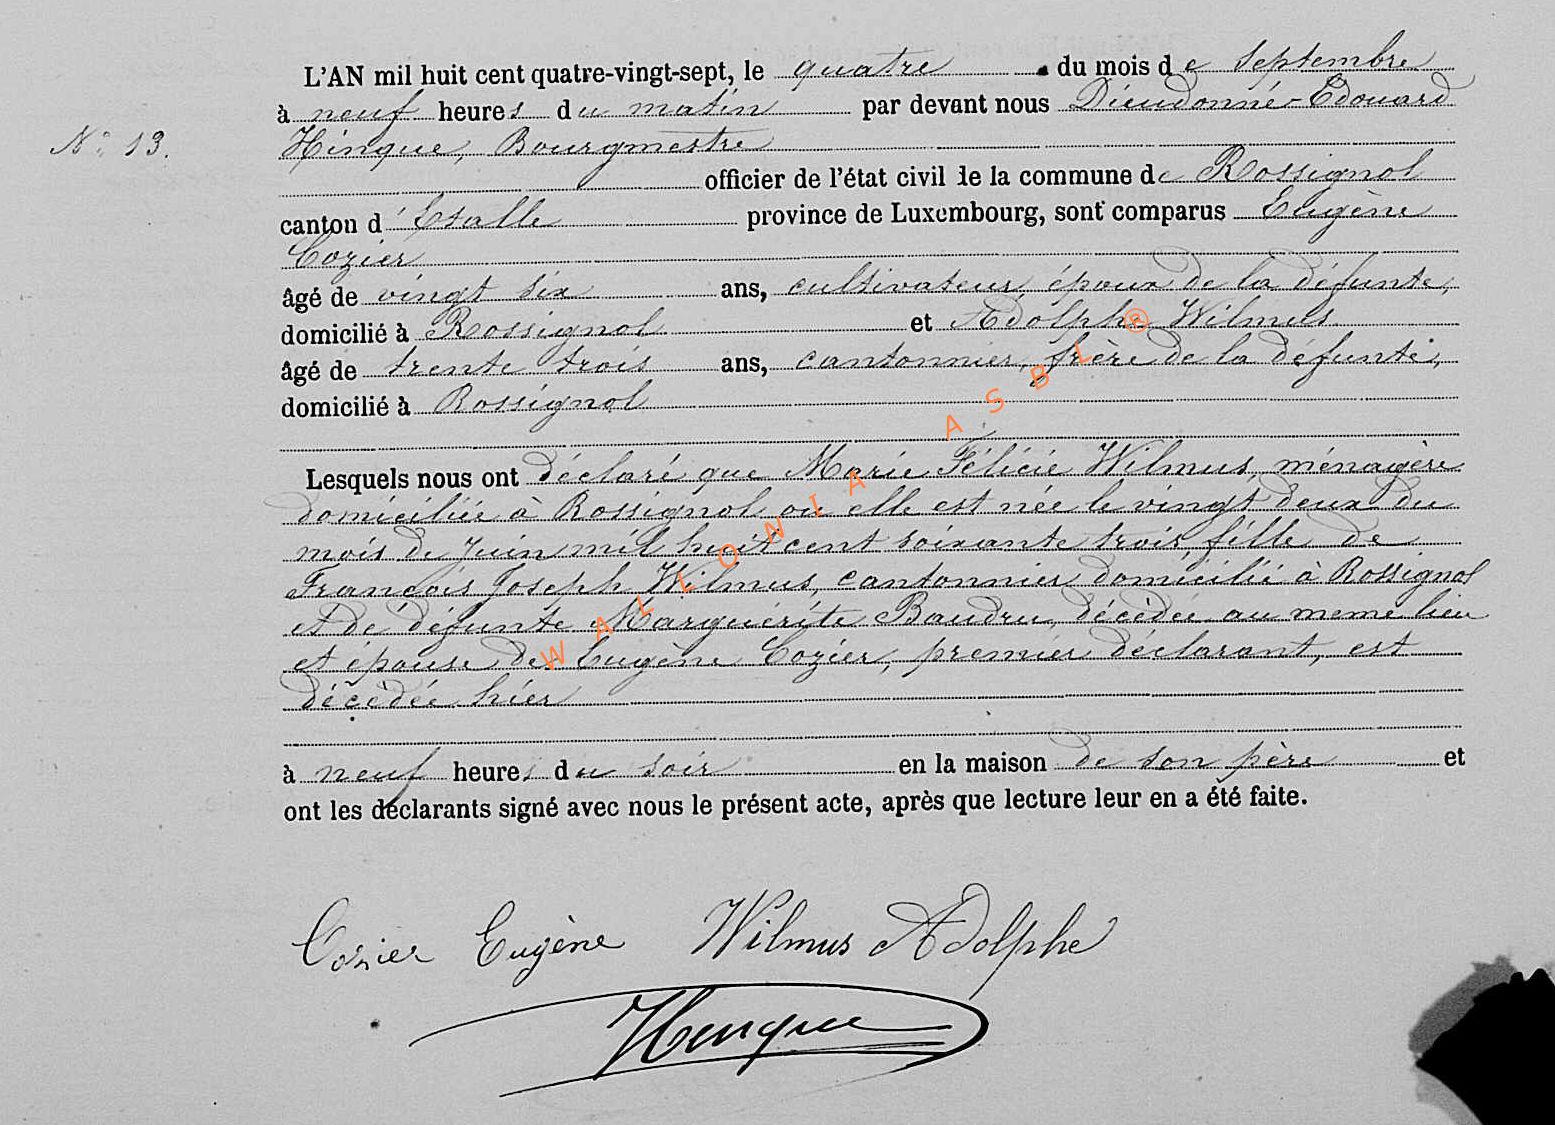 L'AN mil huit cent quatre-vingt-sept, le quatre du mois de Septembre
à neuf heures du matin par devant nous Dieudonné-Edouard
N° 13.
Hinque, Bourgmestre
officier de l'état civil de la commune de Rossignol
canton d'Etalle province de Luxembourg, sont comparus Eugène
Cozier
âgé de vingt six ans, cultivateur, époux de la défunte,
domicilié à Rossignol et Adolphe Wilmus
âgé de trente trois ans, cantonnier, frère de la défunte,
domicilié à Rossignol
Lesquels nous ont déclaré que Marie Félicie Wilmus, ménagère
domiciliée à Rossignol où elle est née le vingt deux du
mois de Juin mil huit cent soixante trois, fille de
François Joseph Wilmus, cantonnier domicilié à Rossignol
et de défunte Marguérite Baudru, décédée au meme lieu
et épouse de Eugène Cozier, premier déclarant, est
décédée hier
à neuf heures du soir en la maison de son père et
ont les déclarants signé avec nous le présent acte, après que lecture leur en a été faite.
Cozier Eugène Wilmus Adolphe
Hinque
WALLONIA ASBL ®